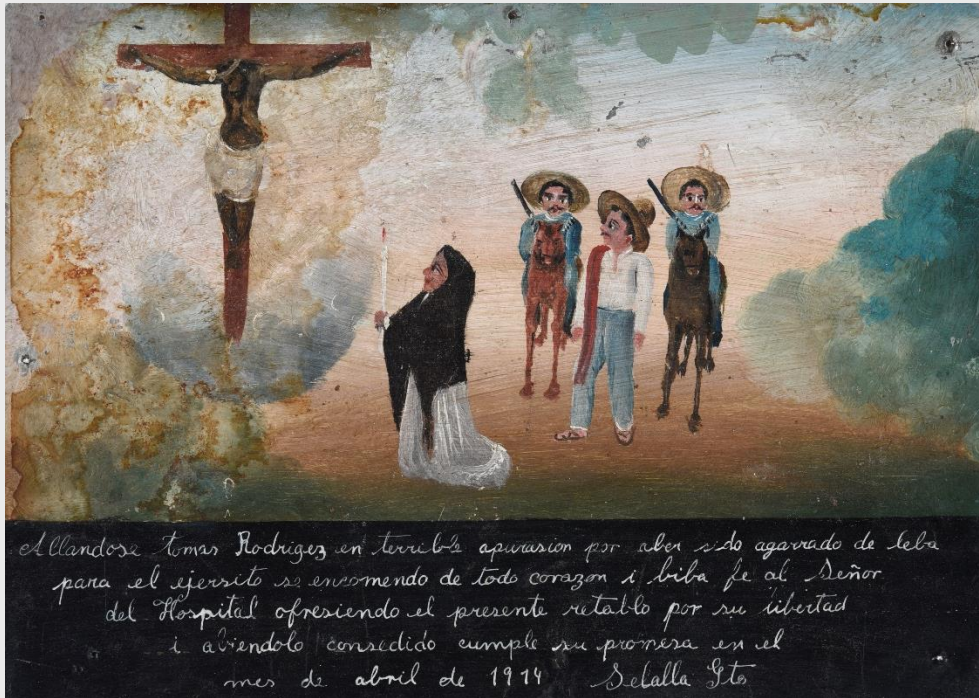 Allandose tomas Rodrigez en terrible apurasion por aber sido agarrado de leba
para el ejersito se encomendo de todo corazon i biba fe al Señor
del Hospital ofresiendo el presente retablo por su libertad
i abiendolo consedido cumple su promesa en el
mes de abril de 1914 Selalla Gto